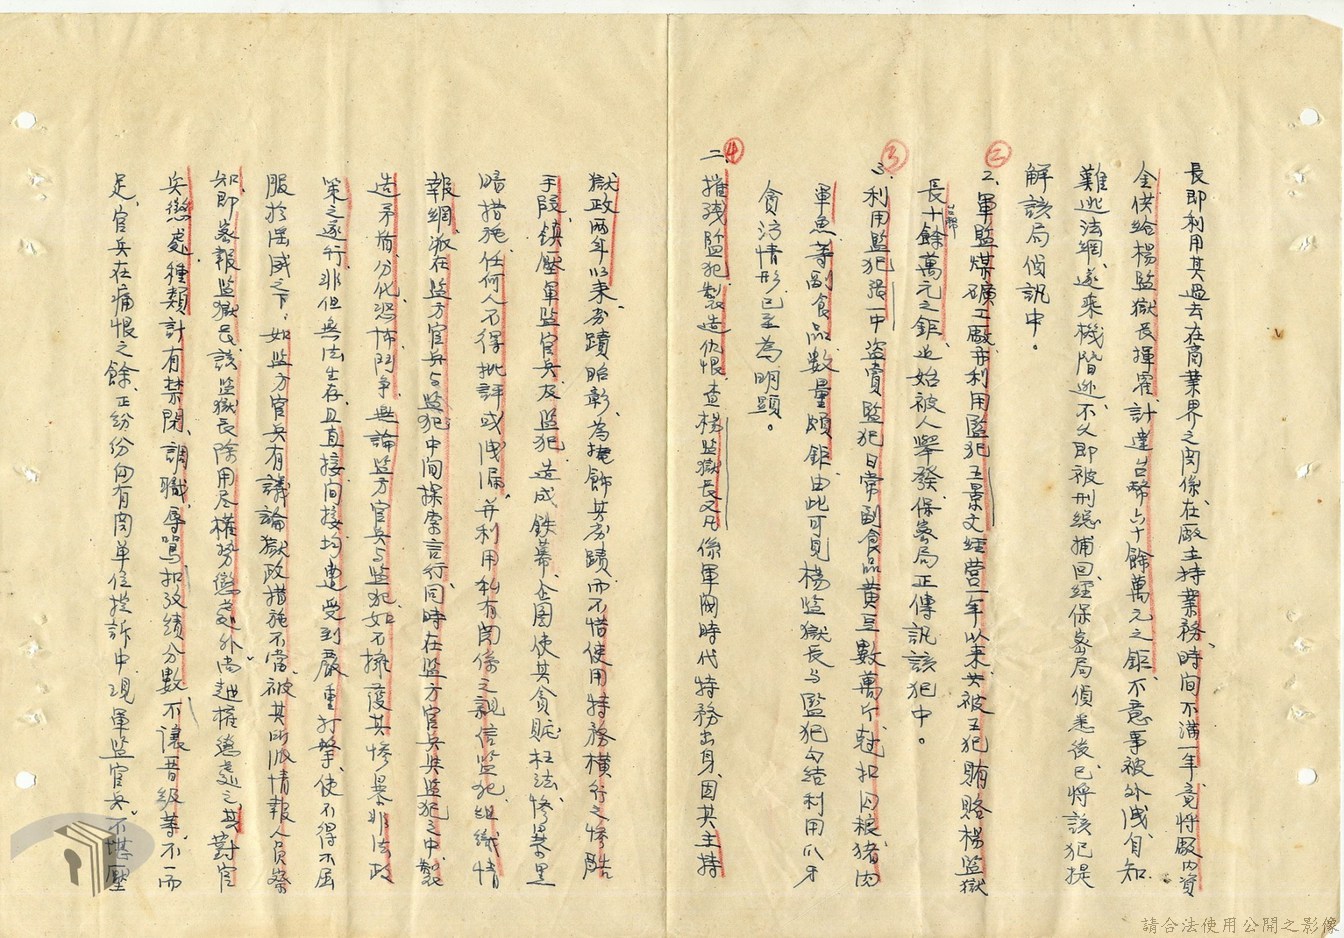 長即利用其過去在商業界之関係、在廠主持業務、時间不满一年、竟将廠内資
金供給楊監獄長揮霍、計達台幣六十餘萬元之鉅、不意事被外洩、自知
難逃法網、遂乘機階逃、不久即被刑總捕回、經保宻局偵悉後、已将該犯提
解該局偵訊中。
②
2. 軍監煤礦工廠、亦利用監犯王景文經營一年以来、共被王犯賄賂楊監獄
長十餘萬元之鉅、近始被人舉發、保宻局正傳訊該犯中。
③
3. 利用監犯張一中盗賣監犯日常副食品黄豆數萬斤、尅扣囚粮、猪肉
軍魚等副食品、數量頗鉅、由此可見楊監獄長与監犯勾结利用爪牙
貪污情形、已至為明顯。
④
二、摧残監犯、製造仇恨、查楊監獄長又凡係軍閥時代特務出身、因其主持
獄政兩年以来、劣蹟昭彰、為掩飾其劣蹟、而不惜使用特務横行之慘酷
手段、鎮壓軍監官兵、及監犯、造成鉄幕、企圖使其貪贓枉法、慘暴黑
暗措施、任何人不得批評或洩漏、并利用私有関係之親信監犯、组織情
報網、散在監方官兵与監犯中间探索言行、同時在监方官兵與监犯之中、製
造矛盾、分化、恐怖鬥争、無論监方官兵与监犯、如不擁護其慘暴非法政
策之遂行、非但無法生存、且直接间接、均遭受到嚴重打擊、使不得不屈
服於淫威之下、如监方官兵有議論獄政措施不當、被其所派情報人員察
知、即宻報监獄長、該监獄長除用尽權势懲處外、尚越權懲處之、其對官
兵懲處、種類計有禁閉、調職、辱罵、扣攷績分數、不讓晋級等、不一而
足、官兵在痛恨之餘、正纷份向有関单位控訴中、现軍监官兵、不堪壓
請合法使用公開之影像